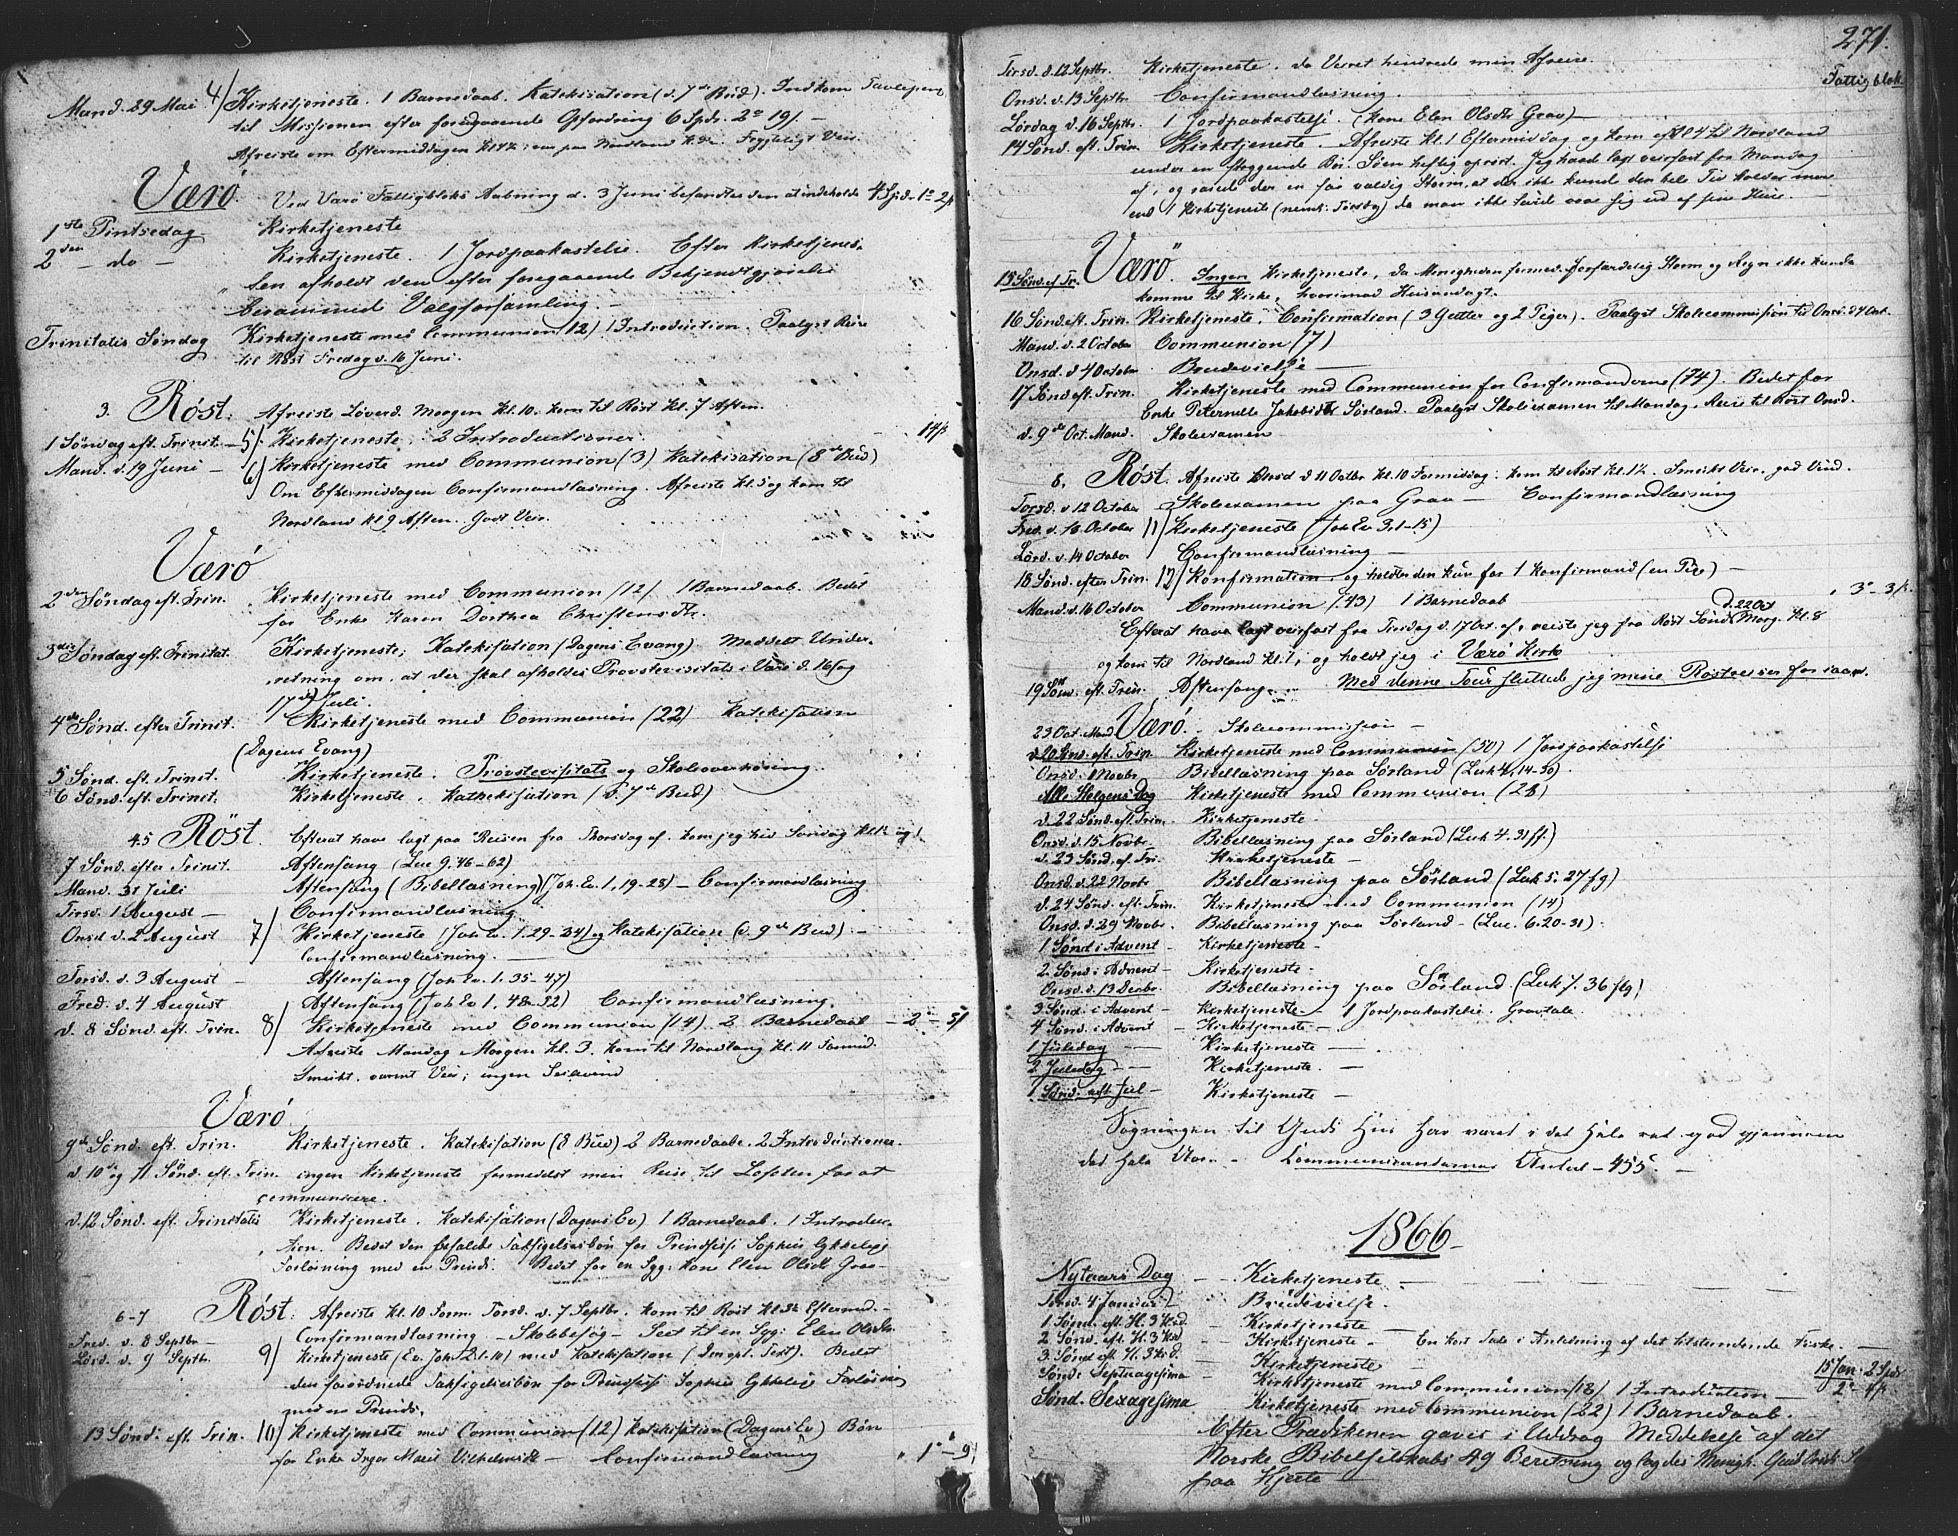 Mand. 29 Mai 4/ Kirketjeneste. 1 Barnedaab. Katekisation (d. 7de Bud). Indkom Tavlepen
til Missionen efter foregaaende Opfordring 6 Spd. 2 19/. –
Afreiste om Eftermiddagen paa Nordland Veir.
Værø. Ved Værø Fattigbloks Aabning d. 3 Juni befandtes den at indeholde 4 Spd. 1 2/
1ste Pintsedag Kirketjeneste
2den – do – Kirketjeneste. 1 Jordpaakastelse. Efter Kirketjenes-
ten afholdt den efter foregaaende Bekjendtgjørelse
berammede Valgforsamling –
Trinitatis Søndag Kirketjeneste med Communion (12) 1 Introduction. Paalyst Reise
til Røst Fredag d. 16 Juni.
3. Røst. Afreiste Løverd. Morgen Kl. 10. kom til Røst Kl. 7 Aften.
1 Søndag eft. Trinit. – 5/. Kirketjeneste, 2 Introductioner. – 14/
Mand. d. 19 Juni – 6) Kirketjeneste med Communion (3) Katekisation (8de Bud)
Om Eftermiddagen Confirmandlæsning. Afreiste Kl. 5 og kom til
Nordland Kl 9 Aften. Godt Veir.
Værø
2den Søndag eft. Trin. Kirketjeneste med Communion (12). 1 Barnedaab. Bedet
for Enke Karen Dorthea Christensdtr.
3die Søndag eft. Trinitat. Kirketjeneste; Katekisation (Dagens Evang) Meddelt Under-
retning om, at der skal afholdes Provstevisitats i Værø d. 16 og
17de Juli.
4de Sønd. efter Trinit. Kirketjeneste med Communion (22) Katekisation
(Dagens Evang)
5 Sønd. eft. Trinit. Kirketjeneste. Provstevisitats og Skoleoverhøring.
6 Sønd. eft. Trinit. Kirketjeneste, Kathekisation (d. 7de Bud)
4.5 Røst. Efterat have lagt paa Reisen fra Thorsdag af, kom jeg hid Søndag Kl.
7 Sønd. efter Trinit. Aftensang (Luc 9, 46–62)
Mand. 31 Juli Aftensang (Bibellæsning) (Joh. Ev. 1, 19–28) – Confirmandlæsning
Tirsd. 1 August – Confirmandlæsning
Onsd d. 2 August 7) Kirketjeneste (Joh. Ev. 1. 29–34) og Katekisation (d. 9de Bud) –
Confirmandlæsning. –
Torsd. d. 3 August – Aftensang (Joh Ev. 1. 35–47)
Fred. d. 4 August Aftensang (Joh Ev 1, 48–52) Confirmandlæsning.
d. 8 Sønd. eft. Trin. 8) Kirketjeneste med Communion (14). 2 Barnedaab – 2 – 5/
Afreiste Mandag Morgen Kl. 3, kom til Nordland Kl. 11 Formid.
Smukt, varmt Veir; ingen Seilvind
Værø
9de Sønd. eft. Trin. Kirketjeneste. Katekisation (8 Bud) 2 Barnedaab. 2 Introductioner.
d. 10de og 11 Sønd. eft. Trin. ingen Kirketjeneste formedelst min Reise til Lofoten for at
communicere.
d. 12 Sønd. eft. Trinitatis Kirketjeneste. Katekisation (Dagens Ev) 1 Barnedaab. 1 Introduc-
tion. Bedet den befalede Taksigelsesbøn for Prindsesse Sophies lykkelige
Forløsning med en Prinds. Bedet for en Syg: Kone Elen Olsdtr Grav –
6–7 Røst. Afreiste Kl. 10 Form. Torsd. d. 7 Septbr. kom til Røst Kl. Eftermid. –
Fred. d. 8 Septbr – Confirmandlæsning – Skolebesøg – Seet til en Syg: Elen Olsdtr.
Lørd. d. 9 Septbr. 9) Kirketjeneste (Ev. Joh. 2. 1–10) med Katekisation (Den opl. Text). Bedet
den forordnede Taksigelsesbøn for Prindsesse Sophies lykkelige Forløsning
med en Prinds.
13 Sønd: eft. Trin. 10) Kirketjeneste med Communion (12) Katekisation (Dagens Ev) Bøn
for Enke Inger Marie Vilhelmsdtr – Confirmandlæsning „ 1 – 9/
271.
Fattigblok.
Tirsd. d. 12 Septbr. Kirketjeneste, da Veiret hindrede min Afreise.
Onsd. d. 13 Septbr. Confirmandlæsning.
Lørdag d. 16 Septbr. 1 Jordpaakastelse (Kone Elen Olsdtr Grav) –
14 Sønd. eft. Trin. Kirketjeneste. Afreiste Kl. 1 Eftermiddag og kom eft. Kl 4 til Nordland
under en Bør. Søen heftig oprørt. Jeg havde lagt veirfast fra Mandag
af, og rasede der en saa voldig Storm, at der ikke kunde den hele Tid holdes mere
end 1 Kirketjeneste (neml: Torsdag) da man ikke turde vove sig ud af sine Huse.
15 Sønd. ef. Tr. Værø. Ingen Kirketjeneste, da Menigheden formed. forfærdelig Storm og Regn ikke kunde
komme til Kirke, hvorimod Husandagt.
16 Sønd. eft. Trin. Kirketjeneste. Confirmation (3 Gutter og 2 Piger). Paalyst Skolecommission til Onsd. d 4 Oct.
Mand. d. 2 October Communion (7)
Onsd. d 4 October Brudevielse –
17 Sønd eft. Trin. Kirketjeneste med Communion for Confirmanderne (74). Bedet for
Enke Peternelle Jakobsdtr Sørland. Paalyst Skoleexamen til Mandag, Reise til Røst Onsd.
d. 9de Oct. Mand. Skoleexamen
8. Røst. Afreiste Onsd d 11 Octbr Kl. 10 Formiddag. kom til Røst Kl. 12. Smukt Veir, god Vind.
Torsd. d 12 October Skoleexamen paa Grav – Confirmandlæsning
Fred. d. 13 October 11) Kirketjeneste (Joh Ev 3. 1–15)
Lørd. d. 14 October Confirmandlæsning –
18 Sønd. efter Trin. 12) Konfirmation, og holdtes den kun for 1 Konfirmand (en Pige) –
Mand. d. 16 October Communion (43) 1 Barnedaab „ 3 – 3/.
Efterat have lagt veirfast fra Tirsdag d. 17 Oct. af, reiste jeg fra Røst Sønd. d. 22 Oct Morg. Kl. 8
og kom til Nordland Kl. 1, og holdt jeg i Værø Kirke
19 Sønd. eft. Trin. Aftensang. – Med denne Tour sluttede jeg mine Røstreiser for iaar.
23 Oct. Mand Værø. Skolecommission –
d. 20 Sønd. eft. Trin. Kirketjeneste med Communion (30) 1 Jordpaakastelse
Onsd. 1 Novbr. Bibellæsning paa Sørland (Luk 4, 14–30).
Alle Helgens Dag Kirketjeneste med Communion (28)
d. 22 Sønd. eft. Trin. Kirketjeneste
Onsd. d. 15 Novbr. Bibellæsning paa Sørland (Luk 4. 31 ff.)
d. 23 Sønd. ef. Tri. Kirketjeneste –
Onsd. d. 22 Novbr Bibellæsning paa Sørland (Luk 5. 27 fg)
d. 24 Sønd. eft. Trin. Kirketjeneste med Communion (14)
Onsd. d. 29 Novbr. Bibellæsning paa Sørland – (Luc. 6. 20–31).
1 Sønd i Advent – Kirketjeneste –
2. Sønd: i Advent – Kirketjeneste –
Onsd. d. 13 Decbr. Bibellæsning paa Sørland (Luk 7. 36 flg)
3 Sønd. i Advent – Kirketjeneste – 1 Jordpaakastelse. Gravtale.
4 Sønd. i Advent – Kirketjeneste –
1 Juledag – Kirketjeneste –
2 Juledag – Kirketjeneste. –
1 Sønd. eft Jul – Kirketjeneste –
Søgningen til Guds Hus har været i det Hele ret god gjennem
det hele Aar – Communicanternes Antal – 455. –
1866
Nytaars Dag – Kirketjeneste –
Torsd. 4 Januar Brudevielse.
1 Sønd. eft. H. 3 Kd. Kirketjeneste –
2 Sønd. eft. H. 3 Kd Kirketjeneste – En kort Tale i Anledning af det tilstundende Fiske. –
3. Sønd eft. H. 3 Kd. Kirketjeneste –
Sønd. Septuagesima Kirketjeneste med Communion (18) 1 Introduction – 15 Jan. 2 Spd.
Sønd. Sexagesima Kirketjeneste med Communion (22) 1 Barnedaab. –
Efter Prædikenen gaves i Uddrag Meddelelse af det
Norske Bibelselskabs 49 Beretning og lagdes Menigh. Guds Ords
paa Hjerte –